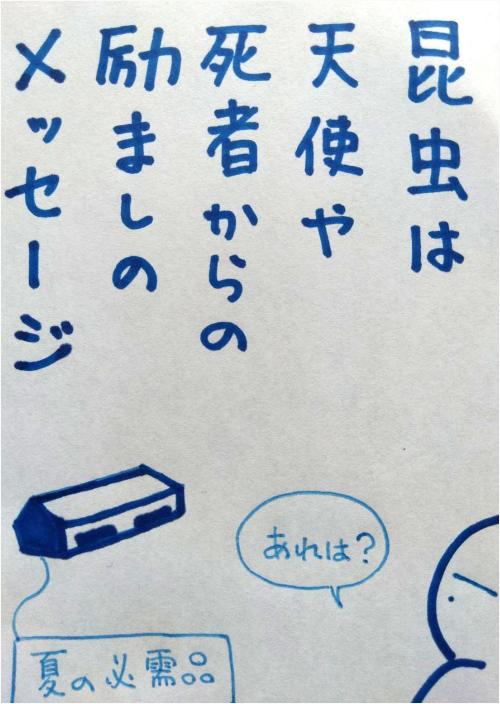 昆虫は
天使や
死者からの
励ましの
メッセージ
あれは?
夏の必需品